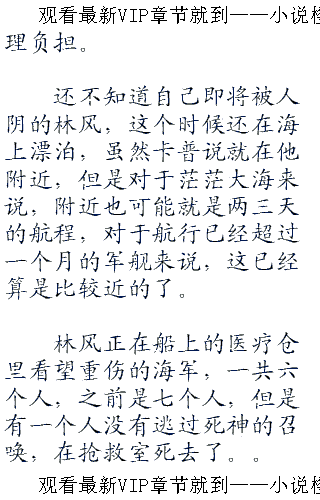 观看最新VIP章节就到——小说检
理负担。
还不知道自己即将被人
阴的林风，这个时候还在海
上漂泊，虽然卡普说就在他
附近，但是对于茫茫大海来
说，附近也可能就是两三天
的航程，对于航行已经超过
一个月的军舰来说，这已经
算是比较近的了。
林风正在船上的医疗仓
里看望重伤的海军，一共六
个人，之前是七个人，但是
有一个人没有逃过死神的召
唤，在抢救室死去了。。
观看最新VIP章节就到——小说检